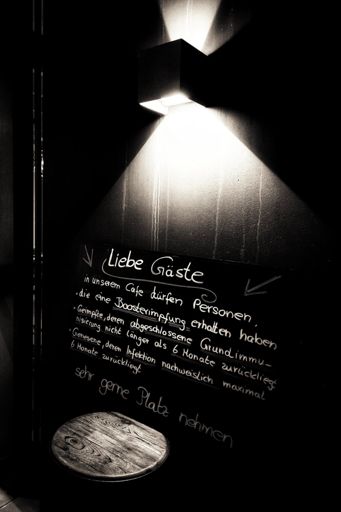 Liebe Gäste
in unserem Cafe dürfen Personen,
· die eine Boosterimpfung erhalten haben
· Geimpfte, deren abgeschlossene Grundimmu-
nisierung nicht länger als 6 Monate zurückliegt
· Genesene, deren Infektion nachweislich maximal
6 Monate zurückliegt
sehr gerne Platz nehmen